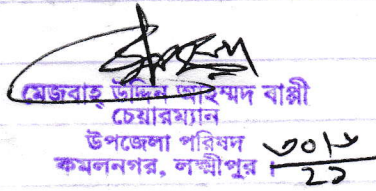 মেজবাহ্ উদ্দিন আহম্মদ বাপ্পী
চেয়ারম্যান
উপজেলা পরিষদ
কমলনগর, লক্ষ্মীপুর।
৩০/৬
২১